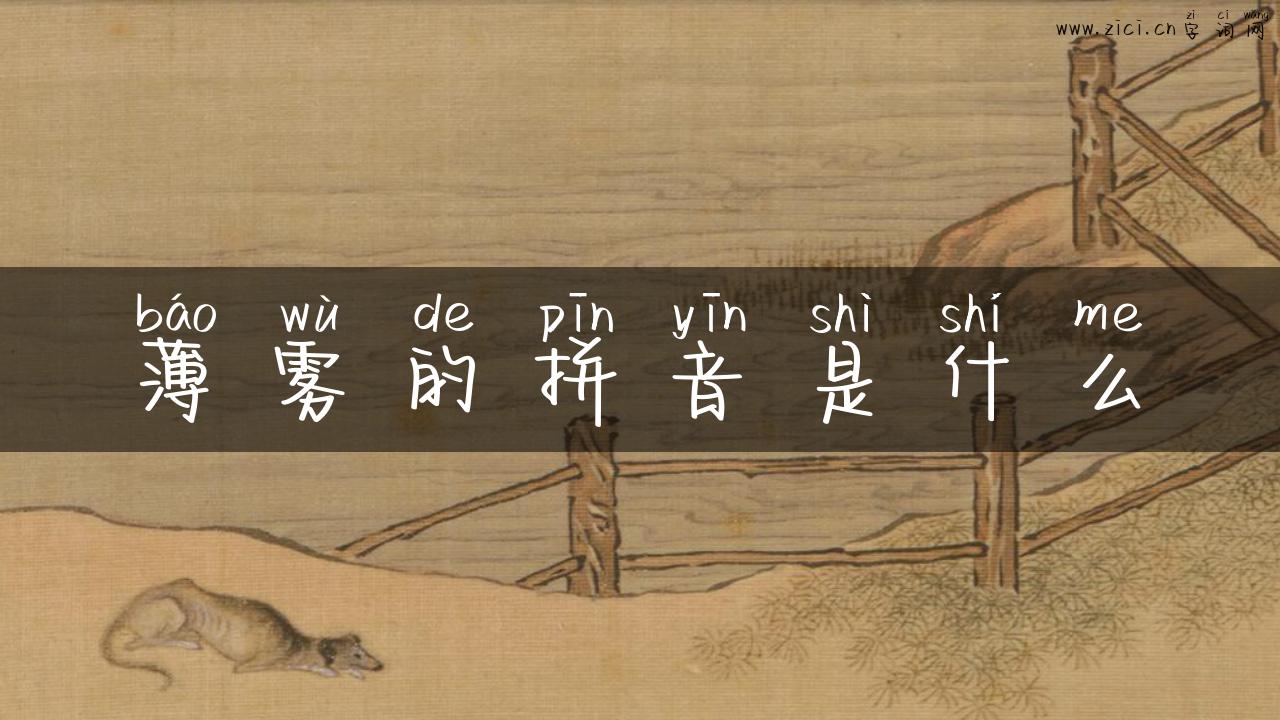 zì cí wǎng
www.zici.cn字词网
báo wù de pīn yīn shì shí me
薄雾的拼音是什么